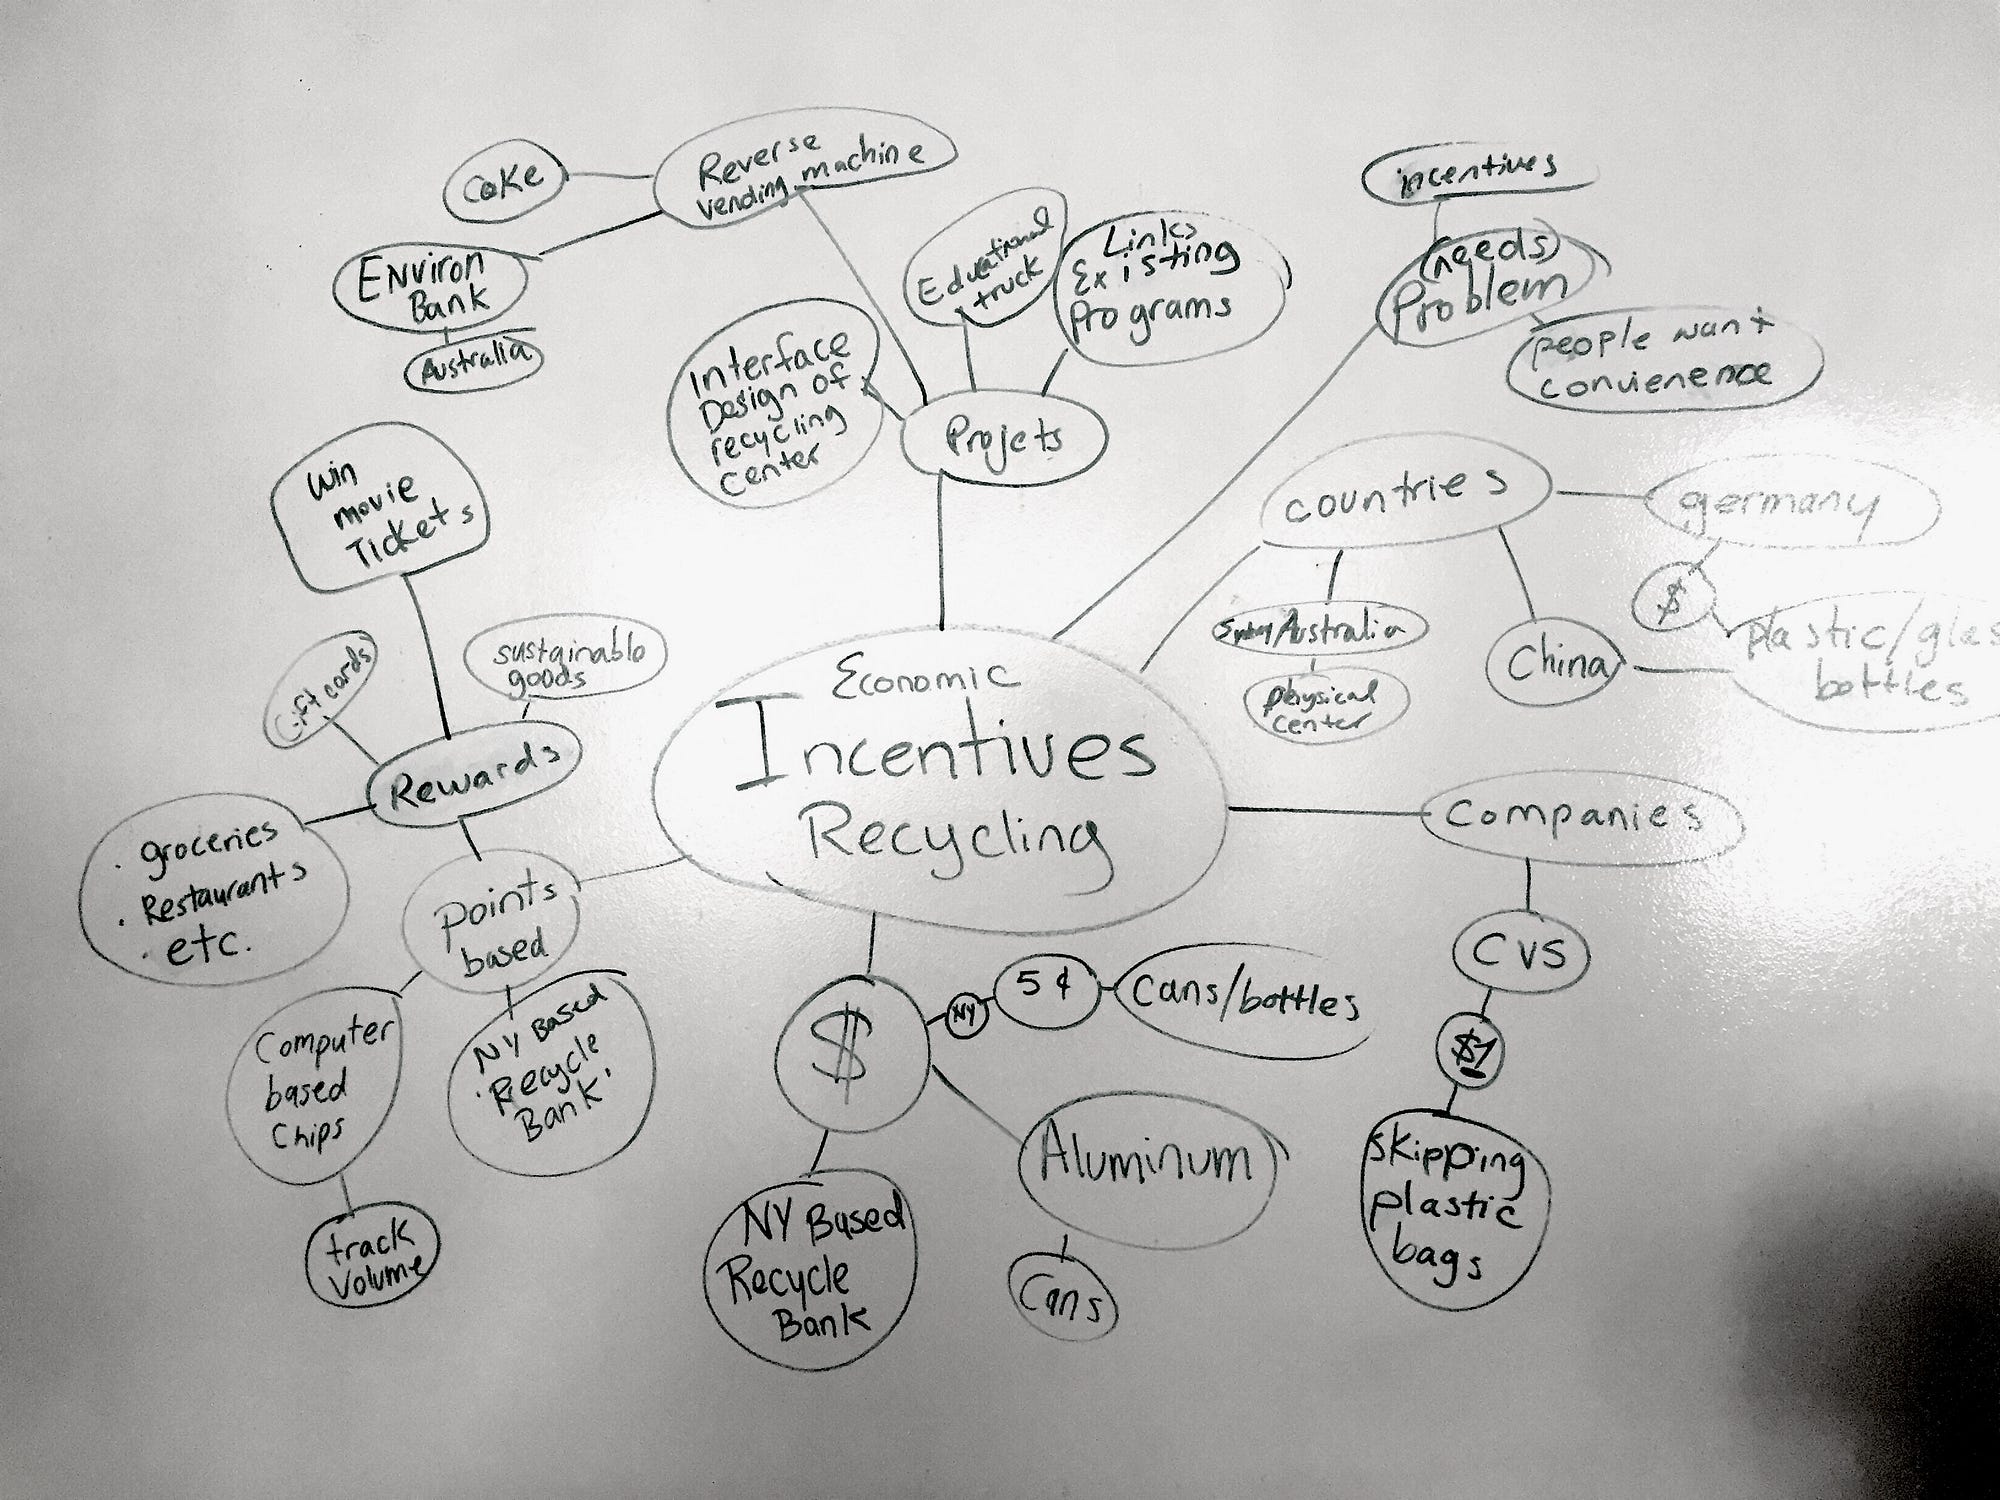 Reverse
vending machine
Coke
Environ
Bank
Australia
Educational
truck
Links
Existing
Programs
Interface
Design of
recycling
center
Projets
incentives
(needs)
Problem
people want
convienence
countries
germany
$
plastic/glas
bottles
China
/Australia
physical
center
Win
movie
Tickets
Gift cards
sustainable
goods
Rewards
· groceries
· Restaurants
· etc.
points
based
Computer
based
Chips
track
Volume
NY Based
Recycle
Bank
Economic
Incentives
Recycling
$
NY
5¢
Cans/bottles
Aluminum
Cans
NY Based
Recycle
Bank
Companies
CVS
$1
skipping
plastic
bags